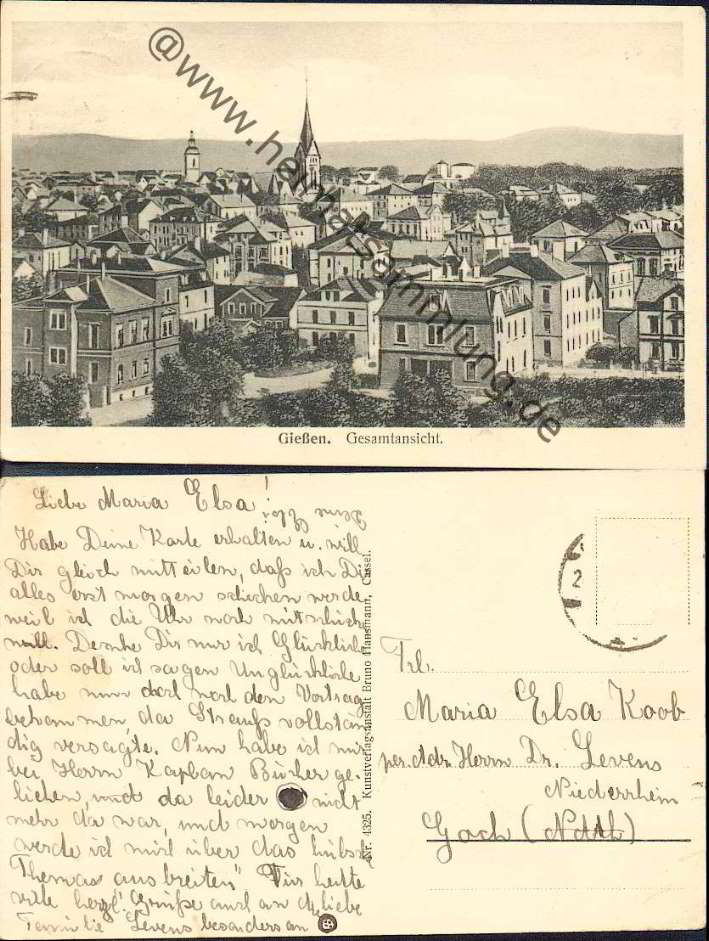 @www.heimatsammlung.de
Gießen. Gesamtansicht.
Liebe Maria Elsa!
Habe Deine Karte erhalten u. will
Dir gleich mitteilen, daß ich Dir
alles erst morgen schicken werde
weil ich die Uhr noch mitschicken
will. Denke Dir nur ich Glückliche
oder soll ich sagen Unglückliche
habe nun doch noch den Vortrag
bekommen, da Strauß vollstän
dig versagte. Nun habe ich mir
bei Herrn Kaplan Bücher ge-
liehen, und da leider nicht
mehr da war, und morgen
werde ich mich über das hübsche
Thema ausbreiten" Für heute
viele herzl. Grüße auch an die liebe
Familie Levens besonders an
Nr. 4325. Kunstverlagsanstalt Bruno Hansmann, Cassel.
2
Frl.
Maria Elsa Koob
per. Adr. Herrn Dr. Levens
Niederrhein
Goch